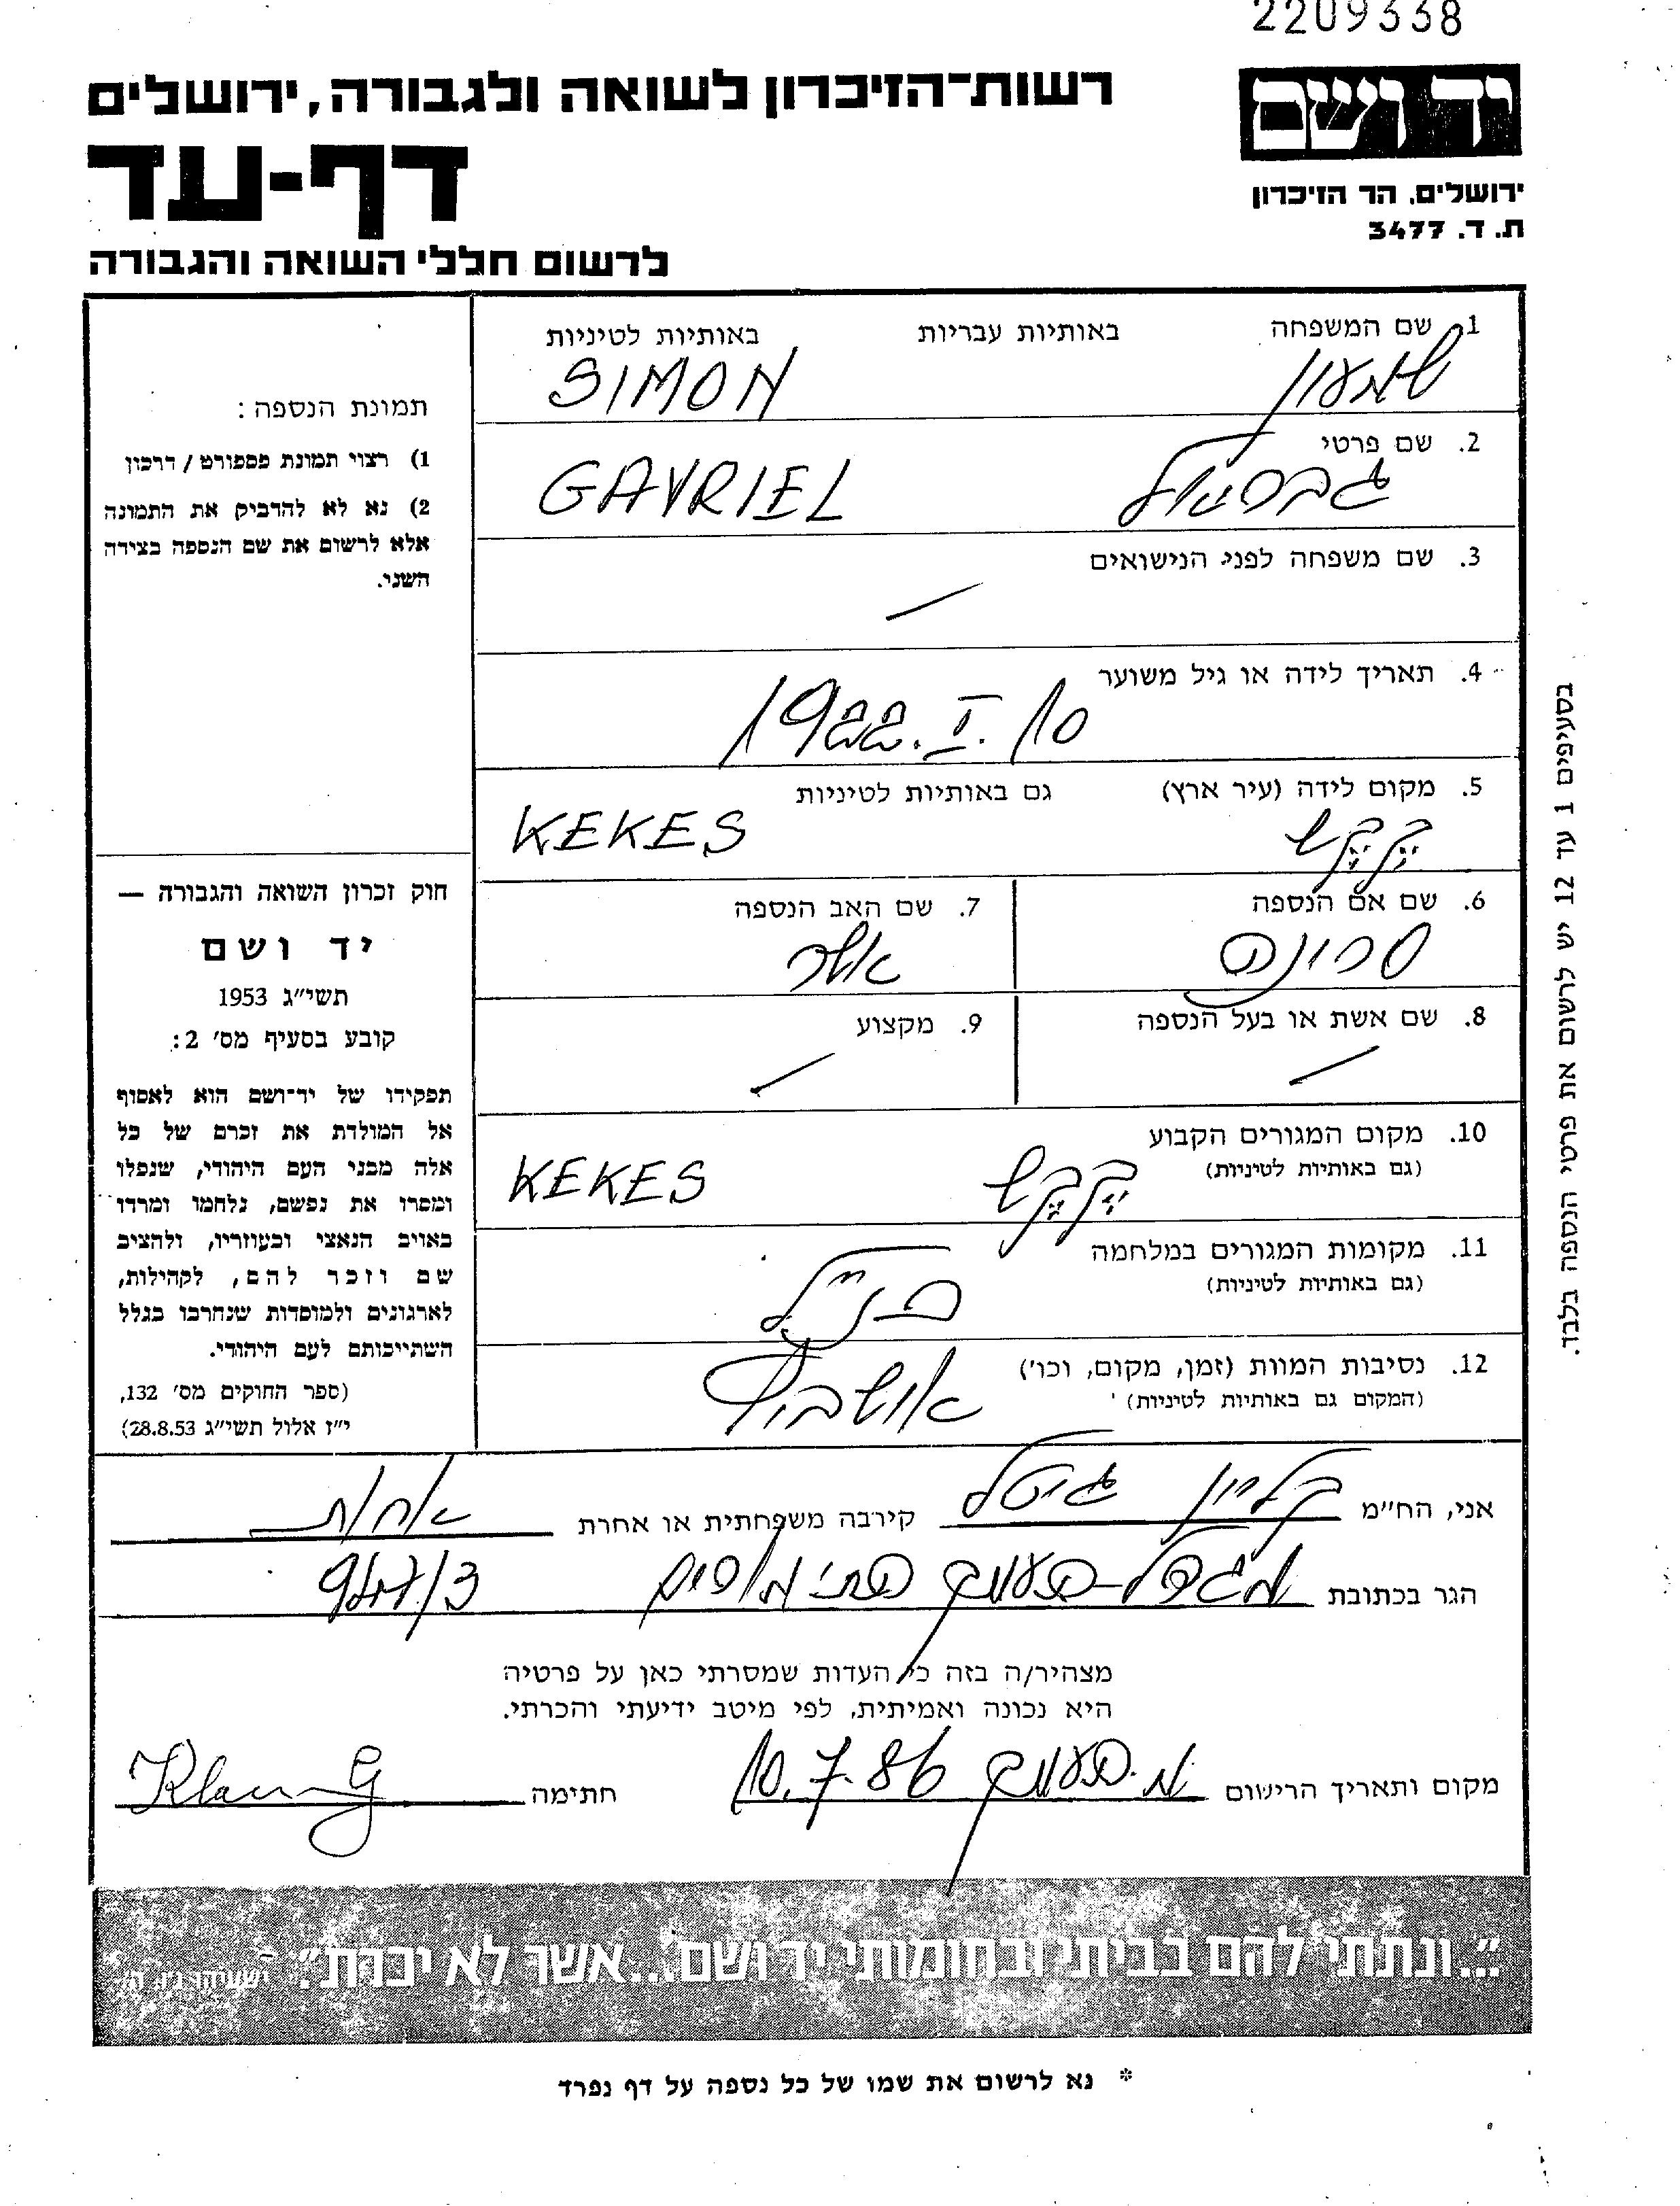 2209338
יד ושם
רשות־הזיכרון לשואה ולגבורה, ירושלים
דף-עד
ירושלים, הר הזיכרון
ת. ד. 3477
לרשום חללי השואה והגבורה
1. שם המשפחה באותיות עבריות באותיות לטיניות
שמעון SIMON
2. שם פרטי
גבריאל GAVRIEL
3. שם משפחה לפני הנישואים
4. תאריך לידה או גיל משוער
10. I. 1922
5. מקום לידה (עיר ארץ) גם באותיות לטיניות
קקש KEKES
6. שם אם הנספה 7. שם האב הנספה
אשר
8. שם אשת או בעל הנספה 9. מקצוע
10. מקום המגורים הקבוע
(גם באותיות לטיניות)
קקש KEKES
11. מקומות המגורים במלחמה
(גם באותיות לטיניות)
הנ"ל
12. נסיבות המוות (זמן, מקום, וכו')
(המקום גם באותיות לטיניות)
אושביץ
תמונת הנספה:
1) רצוי תמונת פספורט / דרכון
2) נא לא להדביק את התמונה
אלא לרשום את שם הנספה בצידה
השני.
חוק זכרון השואה והגבורה —
יד ושם
תשי"ג 1953
קובע בסעיף מס' 2:
תפקידו של יד־ושם הוא לאסוף
אל המולדת את זכרם של כל
אלה מבני העם היהודי, שנפלו
ומסרו את נפשם, נלחמו ומרדו
באויב הנאצי ובעוזריו, ולהציב
שם וזכר להם, לקהילות,
לארגונים ולמוסדות שנחרבו בגלל
השתייכותם לעם היהודי.
(ספר החוקים מס' 132,
י"ז אלול תשי"ג 28.8.53)
בסעיפים 1 עד 12 יש לרשום את פרטי הנספה בלבד.
אני, הח"מ קליין גיטל קירבה משפחתית או אחרת אחות
הגר בכתובת מגדל-העמק 947/3
מצהיר/ה בזה כי העדות שמסרתי כאן על פרטיה
היא נכונה ואמיתית, לפי מיטב ידיעתי והכרתי.
מקום ותאריך הרישום מ. העמק 10.7.86 חתימה Klein G
"...ונתתי להם בביתי ובחומותי יד ושם... אשר לא יכרת". ישעיהו נ"ו, ה'
* נא לרשום את שמו של כל נספה על דף נפרד